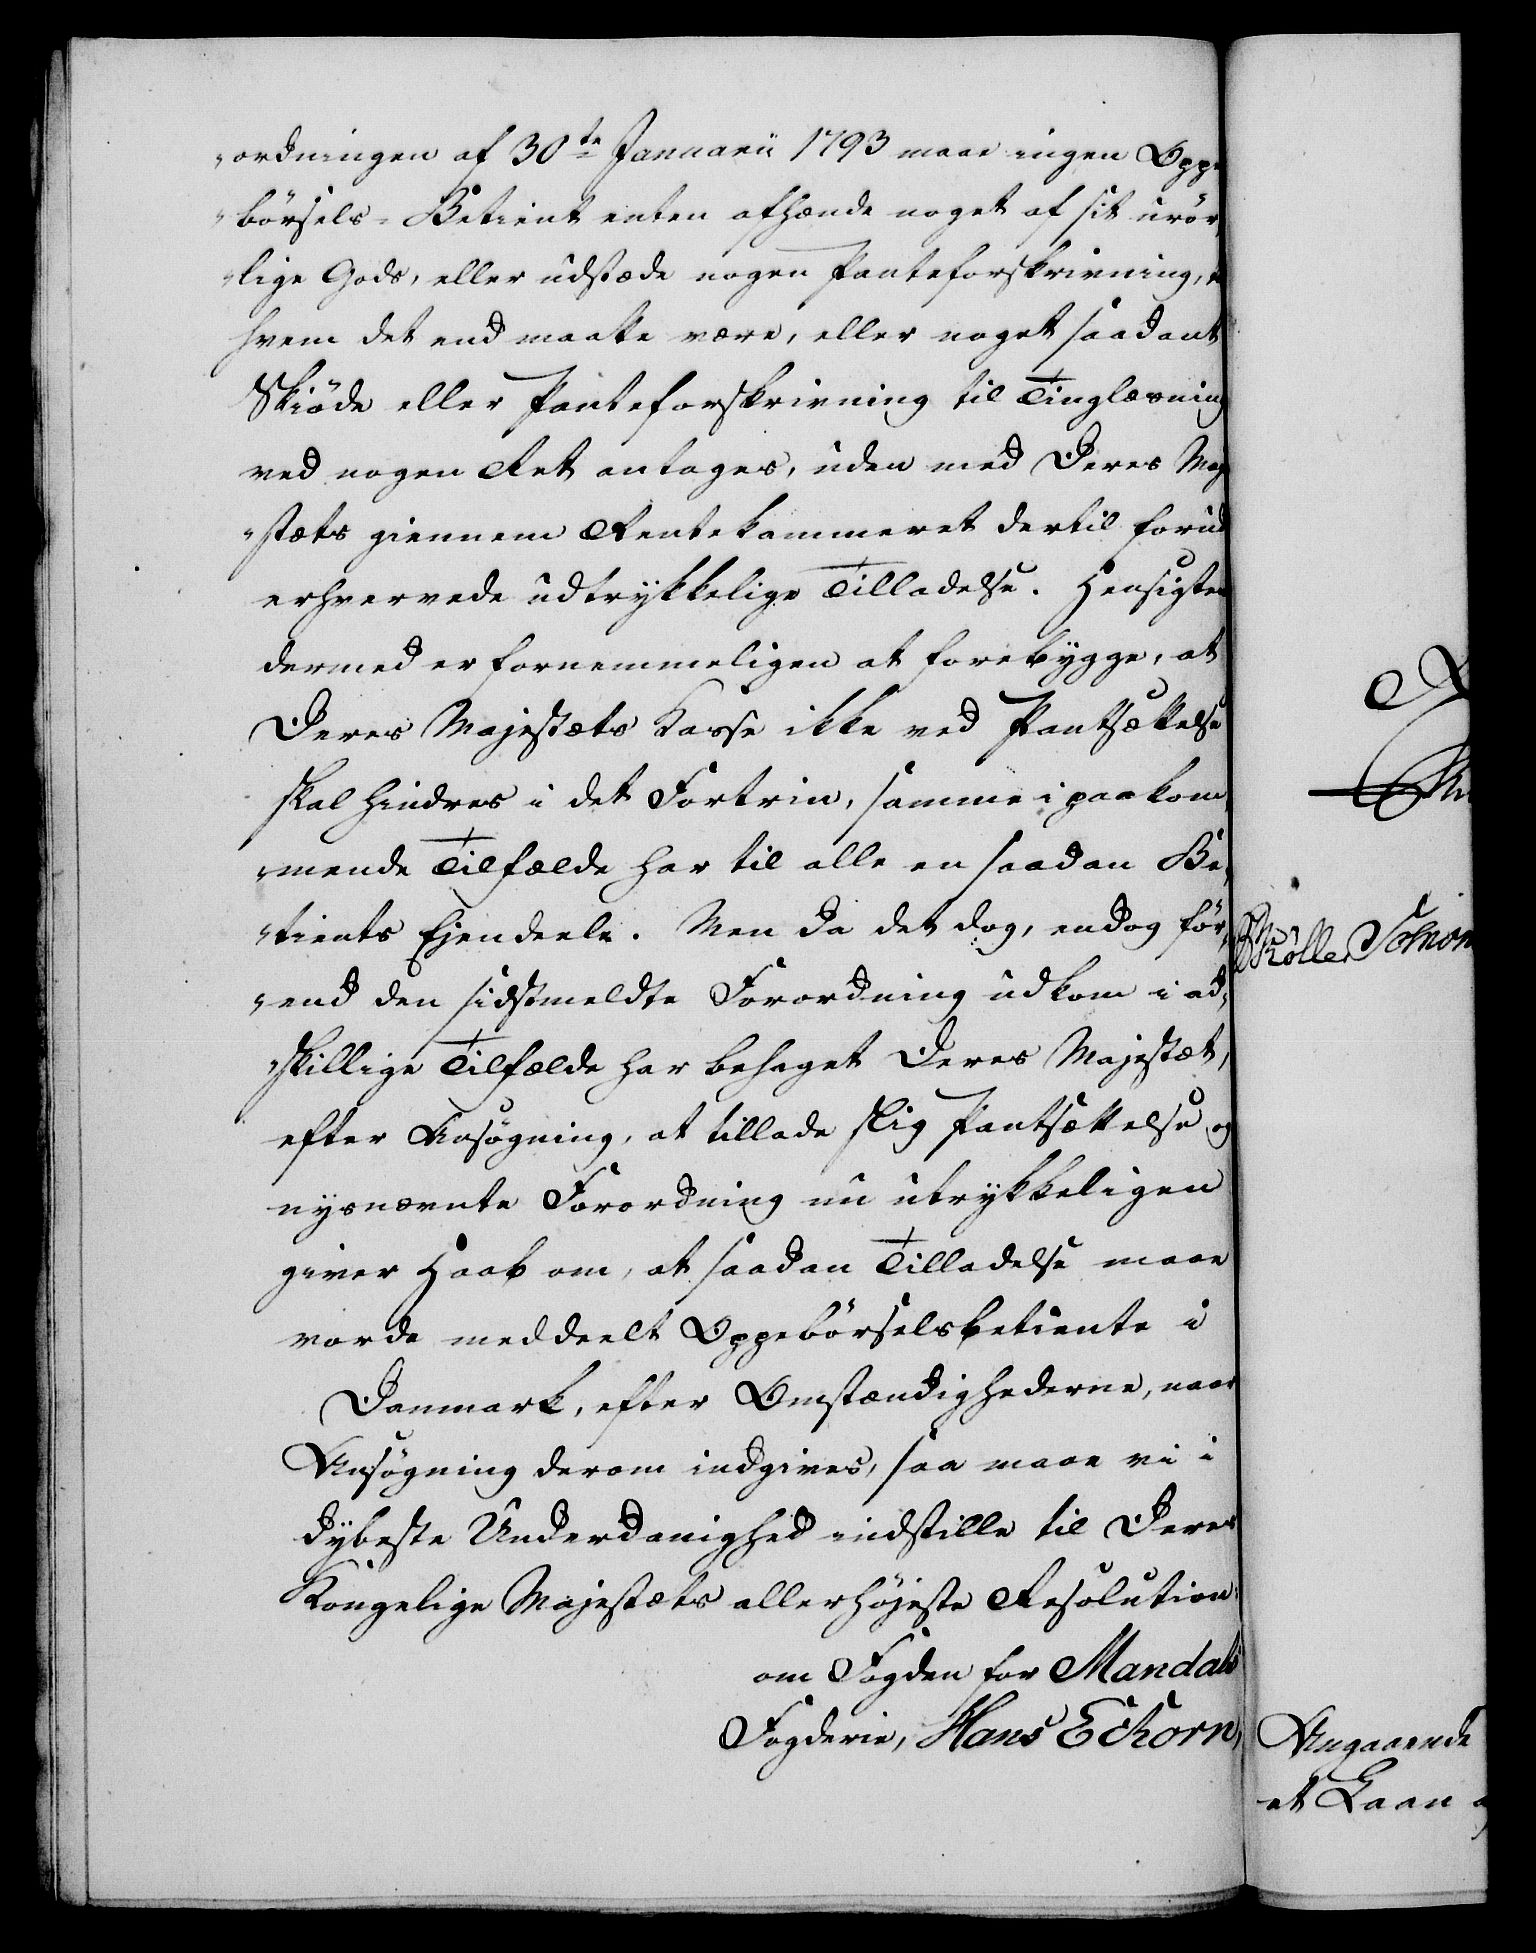 „ordningen af 30te Januarii 1793 maae ingen Oppe
„börsels-Betient enten afhænde noget af sit urör
„lige Gods, eller udstæde nogen Panteforskrivning,
hvem det end maatte være, eller noget saadant
Skiöde eller Panteforskrivning til Tinglæsning
ved nogen Ret antages, uden med Deres Maj
„stæts giennem Rentekammeret dertil forud
erhvervede udtrykkelige Tilladelse. Hensigten
dermed er fornemmeligen at forebygge, at
Deres Majestæts Kasse ikke ved Pantsættelse
skal hindres i det Fortrin, samme i paakom,
„mende Tilfælde har til alle en saadan Be,
„tients Ejendeele. Men da det dog, endog för,
„end den sidstmeldte Forordning udkom i ad,
„skillige Tilfælde har behaget Deres Majestæt,
efter Ansögning, at tillade slig Pantsættelse, og
nysnævnte Forordning nu utrykkeligen
giver Haab om, at saadan Tilladelse maae
vorde meddeelt Oppebörselsbetiente i
Danmark, efter Omstændighederne, naar
Ansögning derom indgives, saa maae vi i
dybeste Underdanighed indstille til Deres
Kongelige Majestæts allerhöjeste Resolution:
om Fogden for Mandals
Fogderie, Hans Eckorn,
Angaaende
et Laan